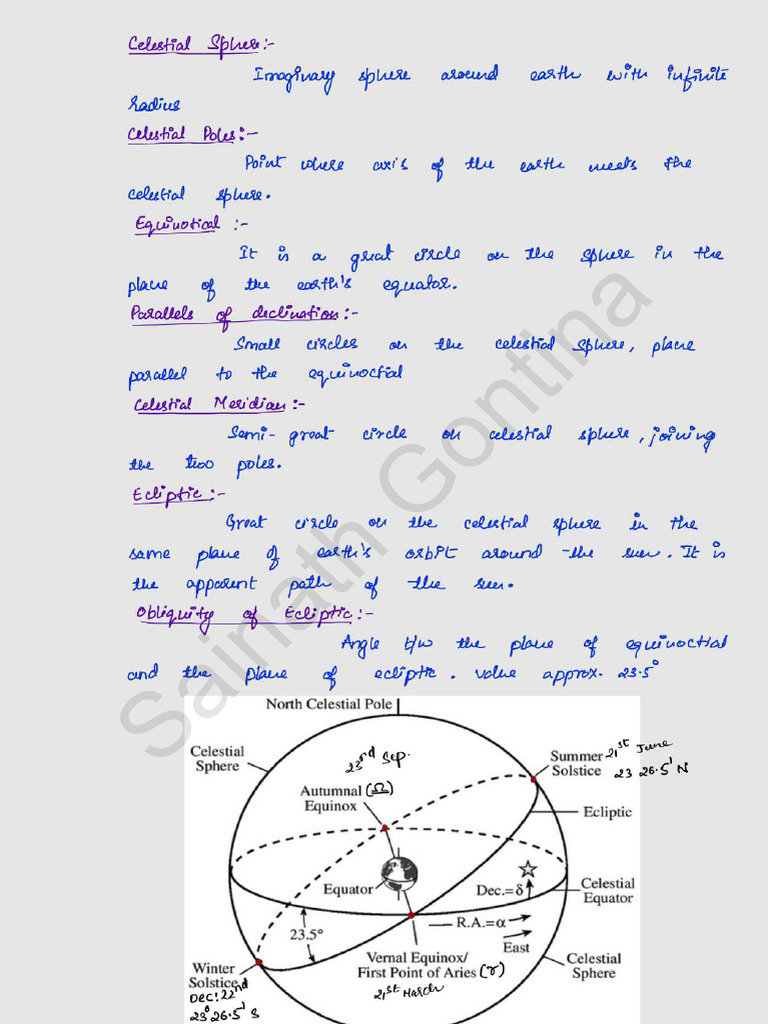 Celestial Sphere:-
Imaginary sphere around earth with infinite
radius
Celestial Poles:-
Point where axis of the earth meets the
celestial sphere.
Equinotical :-
It is a great circle on the sphere in the
plane of the earth's equator.
Parallels of declination:-
Small circles on the celestial sphere, plane
parallel to the equinoctial
Celestial Meridian:-
Semi-great circle on celestial sphere, joining
the two poles.
Ecliptic:-
Great circle on the celestial sphere in the
same plane of earth's orbit around the sun. It is
the apparent path of the sun.
Obliquity of Ecliptic:-
Angle b/w the plane of equinoctial
and the plane of ecliptic. value approx. 23.5°
North Celestial Pole
Celestial
Sphere
23rd Sep.
Summer 21st June
Solstice 23 26.5' N
Autumnal (Ω)
Equinox
Ecliptic
Equator
Dec.=δ
Celestial
Equator
R.A.=α
East
23.5°
Vernal Equinox/
First Point of Aries (♈)
21st March
Celestial
Sphere
Winter
Solstice
Dec: 22nd
23° 26.5' S
Sainath Gontina